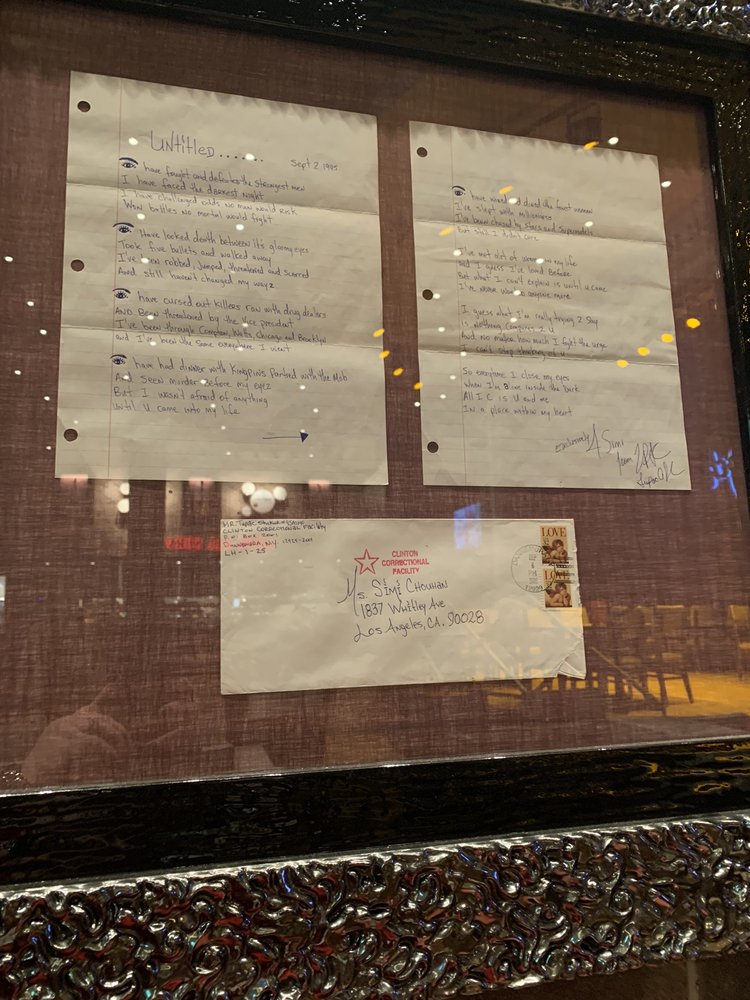 Untitled........
Sept 2 1995
have fought and defeated the strongest men
I have faced the darkest night
I have challenged odds no men would risk
Won battles no mortal would fight
Have looked death between it's gloomy eyes
Took five bullets and walked away
I've been robbed, jumped, threatened and scarred
And still haven't changed my wayz
have cursed out killers raw with drug dealers
AND Been threatened by the vice president
I've been through Compton, Watts, Chicago and Brooklyn
and I've been the same everywhere I went
have had dinner with Kingpins Partied with the Mob
And seen murder before my eyez
But I wasn't afraid of anything
Until U came into my life
have wined and dined the finest women
I've slept with millioness
I've been chased by stars and supermodels
But still I didn't care
I've met alot of women in my life
and I guess I've loved before
But what I can't explain is until U came
I've never wanted anyone more
I guess what I'm really trying 2 say
is nothing compares 2 U
And no matter how much I fight the urge
I can't stop thinking of U
So everytime I close my eyes
when I'm alone inside the dark
All I C is U and me
In a place within my heart
exclusively 4 Simi
from
MR. Tupac Shakur
CLINTON CORRECTIONAL FACility
P.O. Box 2001
Dannemora, N.Y. 12929-2001
LH-1-25
CLINTON
CORRECTIONAL
FACILITY
Ms. Simi Chouhan
1837 Whitley Ave
Los Angeles, CA. 90028
LOVE
LOVE